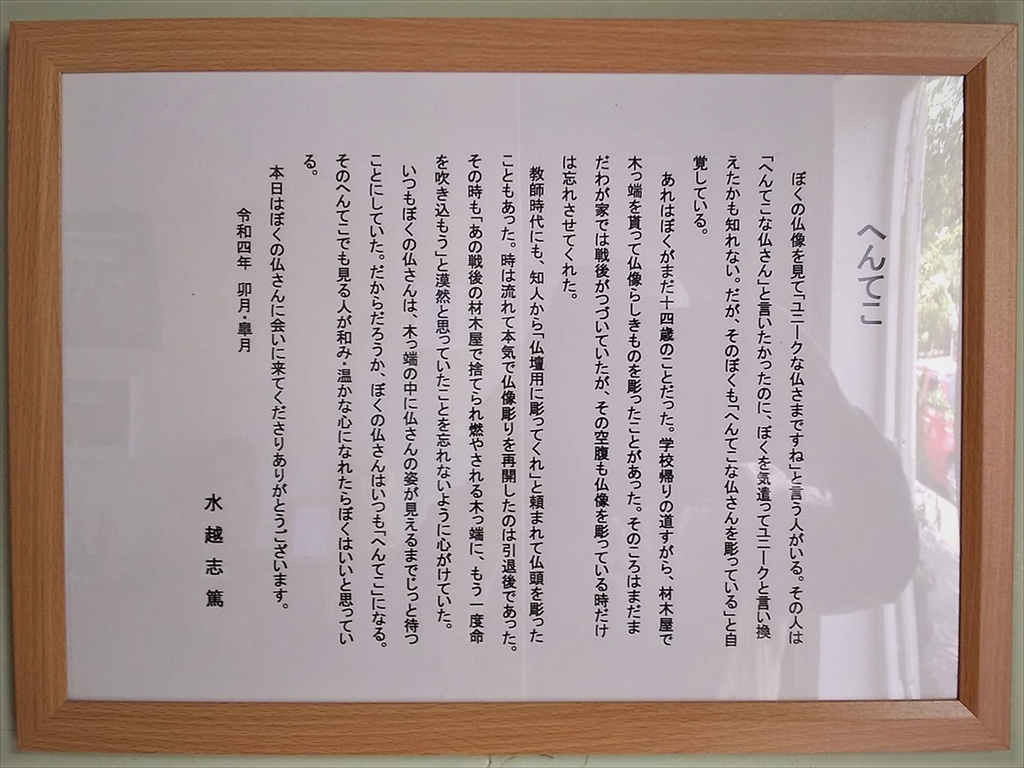 へんてこ
ぼくの仏像を見て「ユニークな仏さまですね」と言う人がいる。その人は
「へんてこな仏さん」と言いたかったのに、ぼくを気遣ってユニークと言い換
えたかも知れない。だが、そのぼくも「へんてこな仏さんを彫っている」と自
覚している。
あれはぼくがまだ十四歳のことだった。学校帰りの道すがら、材木屋で
木っ端を貰って仏像らしきものを彫ったことがあった。そのころはまだま
だわが家では戦後がつづいていたが、その空腹も仏像を彫っている時だけ
は忘れさせてくれた。
教師時代にも、知人から「仏壇用に彫ってくれ」と頼まれて仏頭を彫った
こともあった。時は流れて本気で仏像彫りを再開したのは引退後であった。
その時も「あの戦後の材木屋で捨てられ燃やされる木っ端に、もう一度命
を吹き込もう」と漠然と思っていたことを忘れないように心がけていた。
いつもぼくの仏さんは、木っ端の中に仏さんの姿が見えるまでじっと待つ
ことにしていた。だからだろうか、ぼくの仏さんはいつも「へんてこ」になる。
そのへんてこでも見る人が和み・温かな心になれたらぼくはいいと思ってい
る。
本日はぼくの仏さんに会いに来てくださりありがとうございます。
令和四年 卯月・皐月
水越志篤